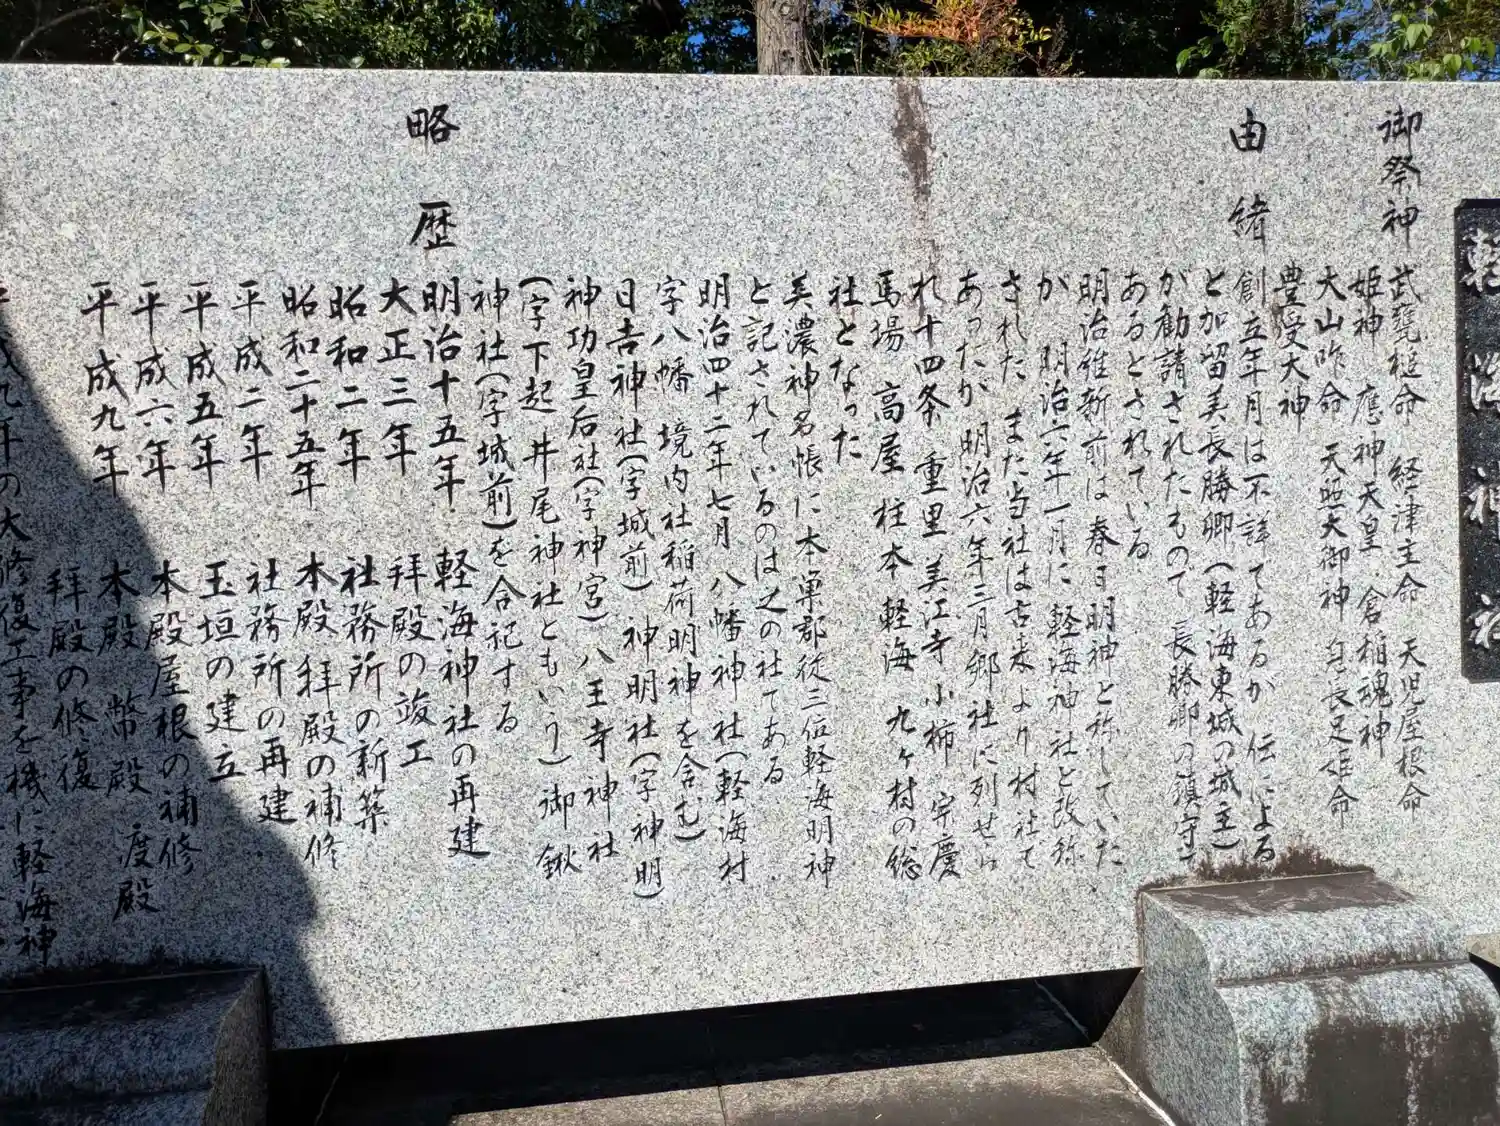 軽海神社
御祭神
武甕槌命 経津主命 天児屋根命
姫神 應神天皇 倉稲魂神
大山咋命 天照大御神 息長足姫命
豊受大神
由緒
創立年月は不詳であるが 伝による
と加留美長勝卿(軽海東城の城主)
が勧請されたもので 長勝卿の鎮守で
あるとされている
明治維新前は春日明神と称していた
が 明治六年一月に軽海神社と改称
された また当社は古来より村社で
あったが 明治六年三月郷社に列せら
れ十四条 重里 美江寺 小柿 宗慶
馬場 高屋 柱本 軽海 九ヶ村の総
社となった
美濃神名帳に本巣郡従三位軽海明神
と記されているのは之の社である
明治四十二年七月 八幡神社(軽海村
字八幡 境内社稲荷明神を含む)
日吉神社(字城前) 神明社(字神明)
神功皇后社(字神宮) 八王寺神社
(字下起 井尾神社ともいう) 御鍬
神社(字城前)を合祀する
略歴
明治十五年 軽海神社の再建
大正三年 拝殿の竣工
昭和二年 社務所の新築
昭和二十五年 本殿拝殿の補修
平成二年 社務所の再建
平成五年 玉垣の建立
平成六年 本殿屋根の補修
平成九年 本殿 幣殿 渡殿
拝殿の修復
平成九年の大修復工事を機に軽海神